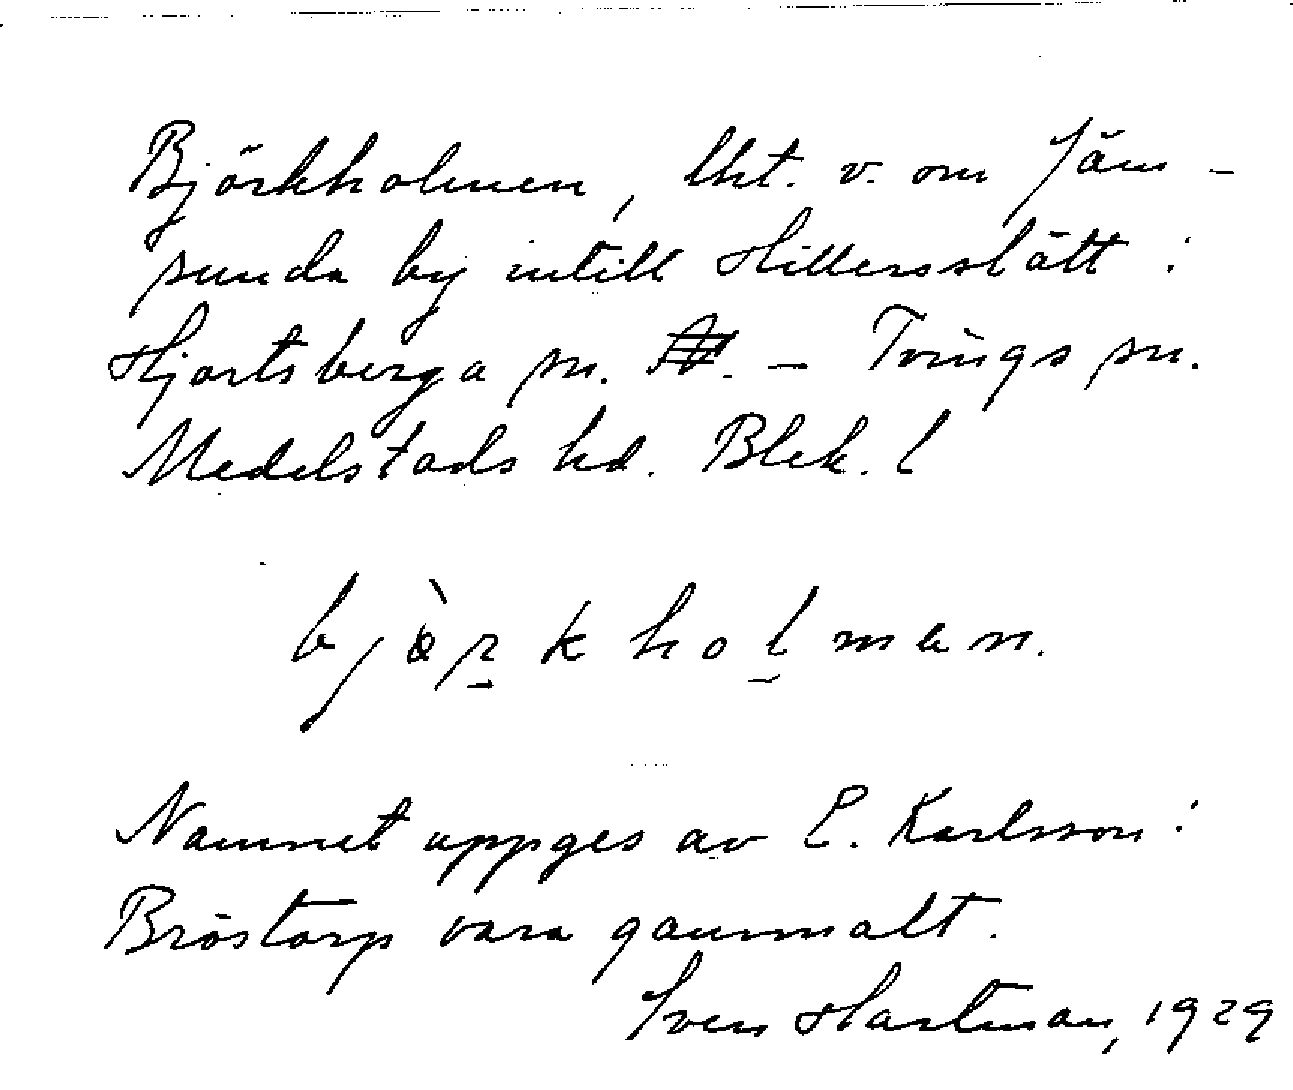 Björkholmen, lht. v. om Jäm-
sunda by intill Hillerslätt i
Hjortsberga sn. – Tvings sn.
Medelstads hd. Blek. l
bjö̀rkholman.
Namnet uppges av E. Karlsson i
Bröstorp vara gammalt.
Sven Hartman, 1929